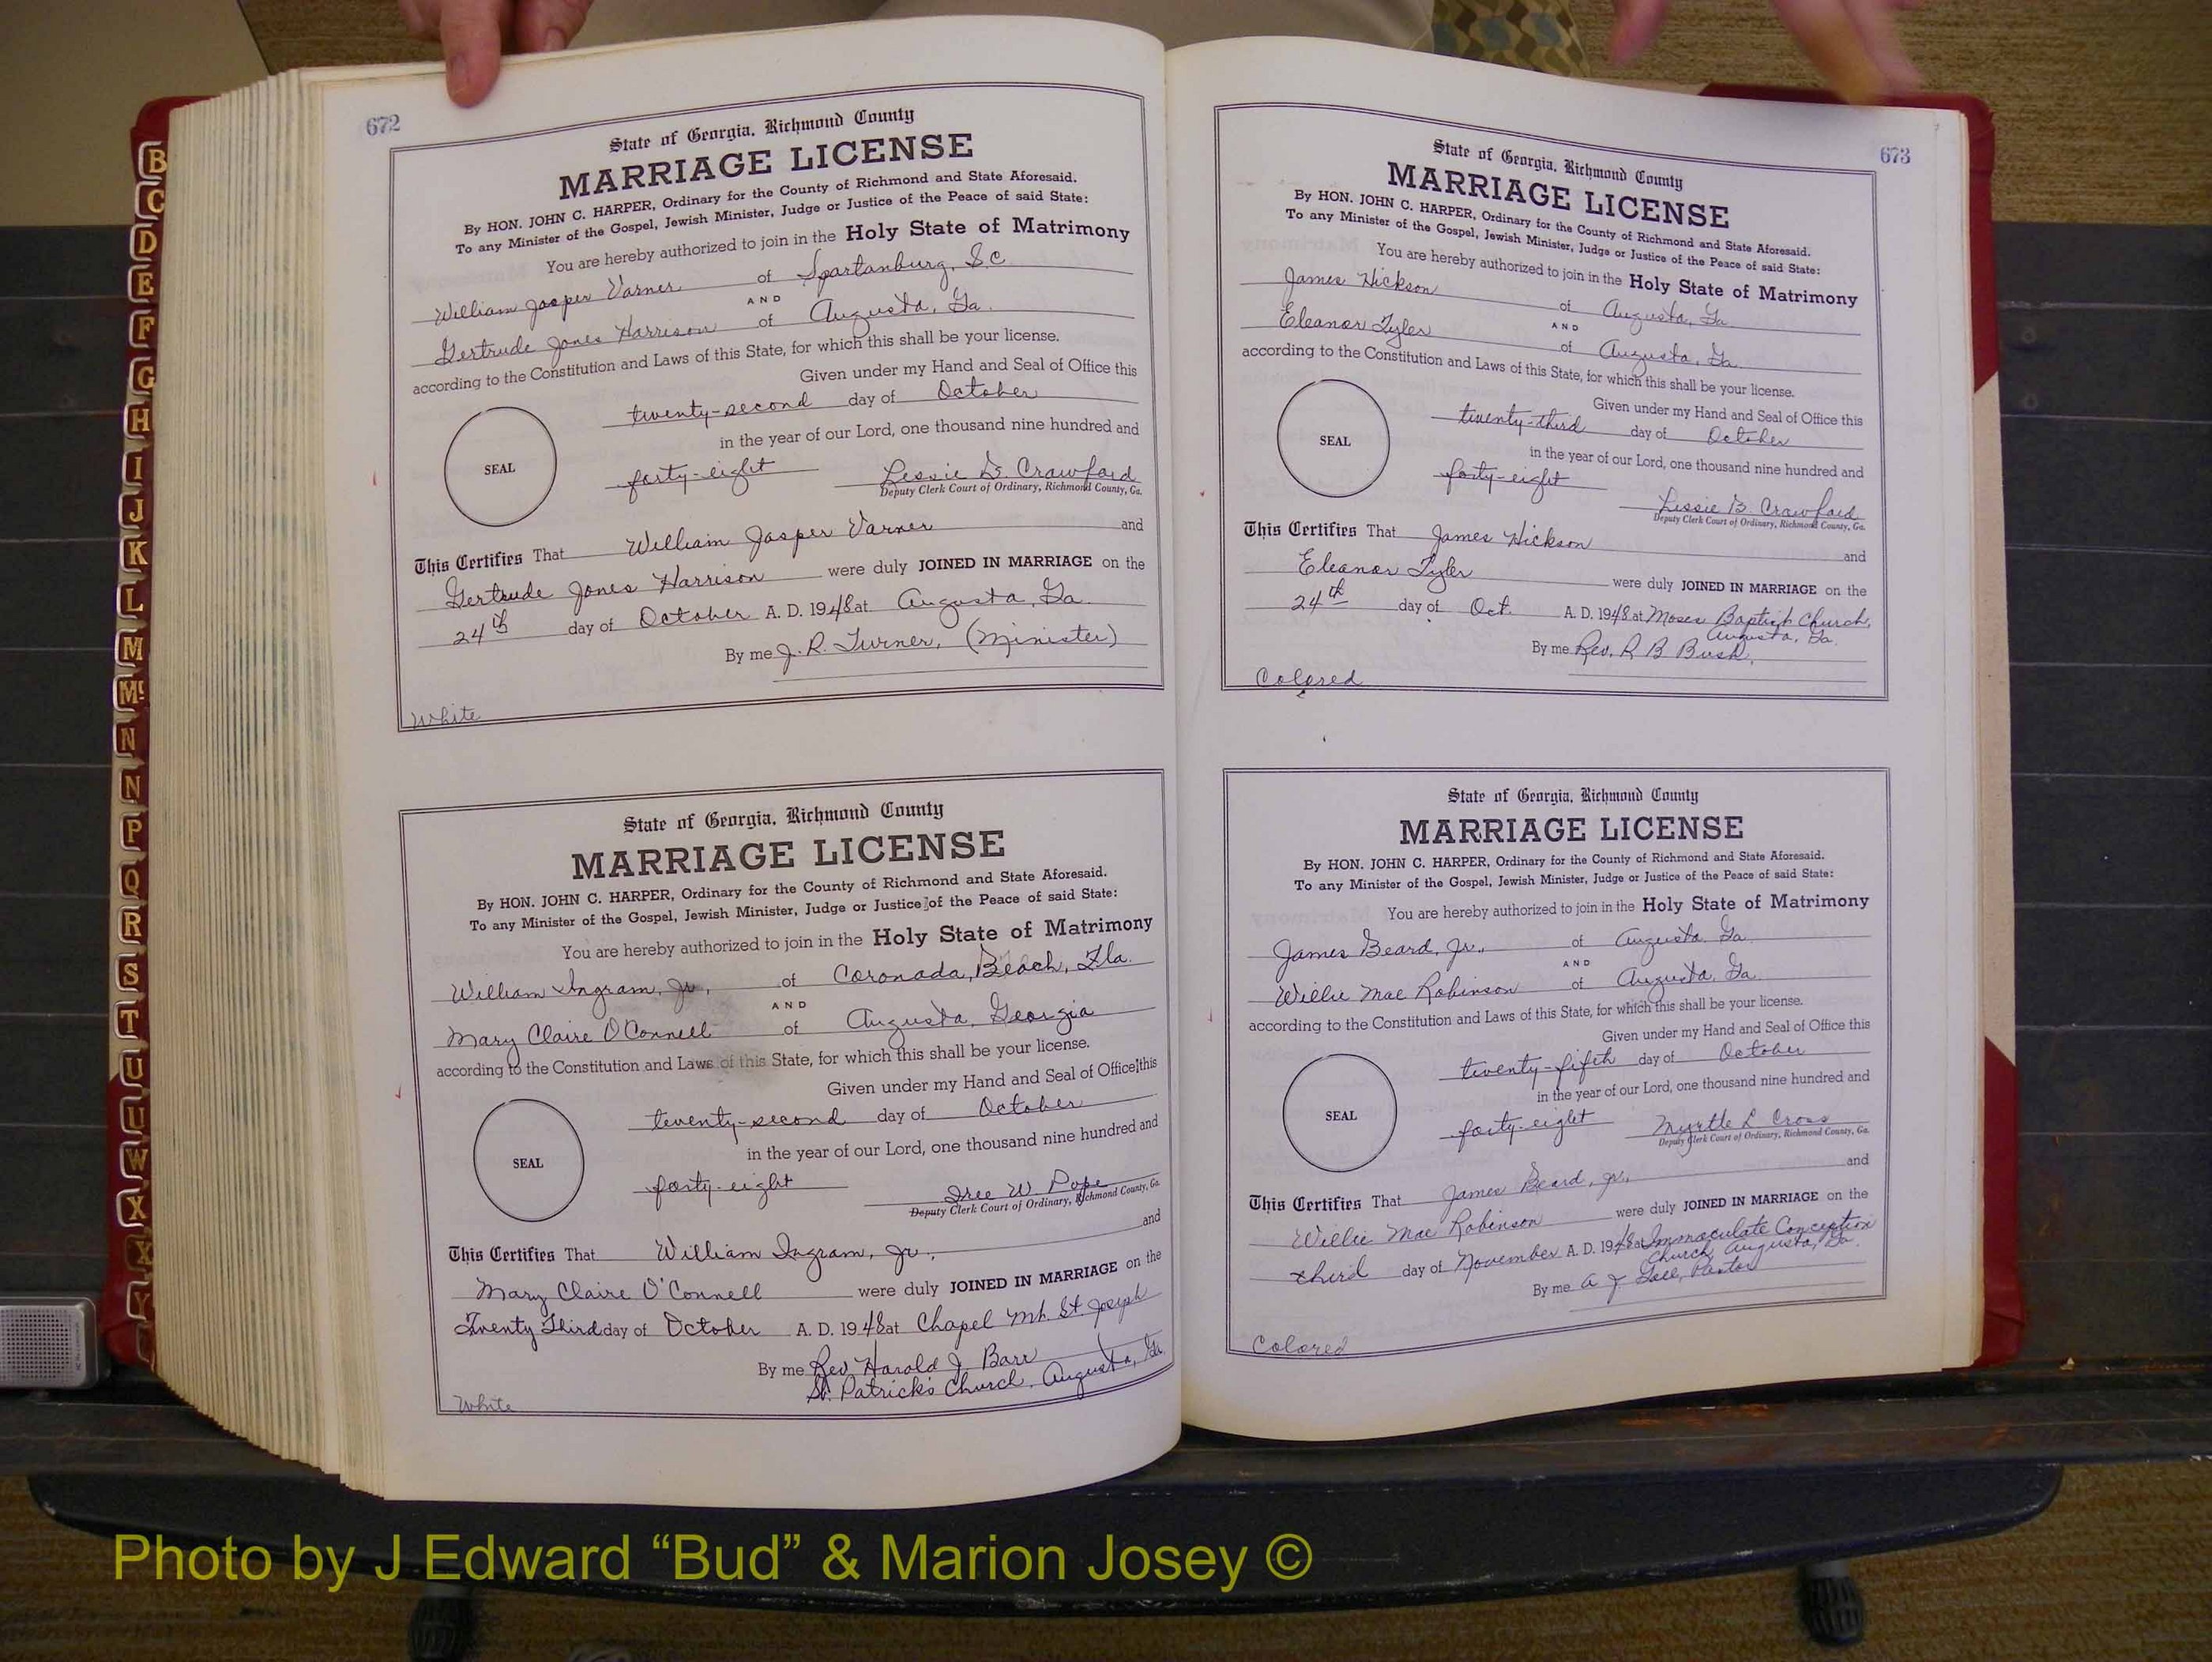 672
State of Georgia, Richmond County
MARRIAGE LICENSE
By HON. JOHN C. HARPER, Ordinary for the County of Richmond and State Aforesaid.
To any Minister of the Gospel, Jewish Minister, Judge or Justice of the Peace of said State:
You are hereby authorized to join in the Holy State of Matrimony
William Jasper Varner of Spartanburg, S.C.
AND
Gertrude Jones Harrison of Augusta, Ga.
according to the Constitution and Laws of this State, for which this shall be your license.
Given under my Hand and Seal of Office this
twenty-second day of October
in the year of our Lord, one thousand nine hundred and
SEAL
forty-eight Lessie B. Crawford
Deputy Clerk Court of Ordinary, Richmond County, Ga.
This Certifies That William Jasper Varner and
Gertrude Jones Harrison were duly JOINED IN MARRIAGE on the
24th day of October A. D. 1948 at Augusta, Ga.
By me J. R. Turner, (Minister)
White
State of Georgia, Richmond County
MARRIAGE LICENSE
By HON. JOHN C. HARPER, Ordinary for the County of Richmond and State Aforesaid.
To any Minister of the Gospel, Jewish Minister, Judge or Justice of the Peace of said State:
You are hereby authorized to join in the Holy State of Matrimony
William Ingram, Jr., of Coronada, Beach, Fla.
AND
Mary Claire O'Connell of Augusta, Georgia
according to the Constitution and Laws of this State, for which this shall be your license.
Given under my Hand and Seal of Office this
twenty-second day of October
in the year of our Lord, one thousand nine hundred and
SEAL
forty-eight W. Pope
Deputy Clerk Court of Ordinary, Richmond County, Ga.
This Certifies That William Ingram, Jr., and
Mary Claire O'Connell were duly JOINED IN MARRIAGE on the
Twenty Third day of October A. D. 1948 at Chapel Mt. St. Joseph
By me Rev Harold J. Barr
St. Patrick's Church, Augusta, Ga.
White
673
State of Georgia, Richmond County
MARRIAGE LICENSE
By HON. JOHN C. HARPER, Ordinary for the County of Richmond and State Aforesaid.
To any Minister of the Gospel, Jewish Minister, Judge or Justice of the Peace of said State:
You are hereby authorized to join in the Holy State of Matrimony
James Hickson of Augusta, Ga.
AND
Eleanor Tyler of Augusta, Ga.
according to the Constitution and Laws of this State, for which this shall be your license.
Given under my Hand and Seal of Office this
twenty-third day of October
in the year of our Lord, one thousand nine hundred and
SEAL
forty-eight Lessie B. Crawford
Deputy Clerk Court of Ordinary, Richmond County, Ga.
This Certifies That James Hickson and
Eleanor Tyler were duly JOINED IN MARRIAGE on the
24th day of Oct. A. D. 1948 at Moses Baptist Church,
Augusta, Ga.
By me Rev. R B Bush,
Colored
State of Georgia, Richmond County
MARRIAGE LICENSE
By HON. JOHN C. HARPER, Ordinary for the County of Richmond and State Aforesaid.
To any Minister of the Gospel, Jewish Minister, Judge or Justice of the Peace of said State:
You are hereby authorized to join in the Holy State of Matrimony
James Beard, Jr., of Augusta, Ga.
AND
Willie Mae Robinson of Augusta, Ga.
according to the Constitution and Laws of this State, for which this shall be your license.
Given under my Hand and Seal of Office this
twenty-fifth day of October
in the year of our Lord, one thousand nine hundred and
SEAL
forty-eight Myrtle L Cross
Deputy Clerk Court of Ordinary, Richmond County, Ga.
This Certifies That James Beard, Jr., and
Willie Mae Robinson were duly JOINED IN MARRIAGE on the
third day of November A. D. 1948 at Immaculate Conception
Church, Augusta, Ga.
By me A J Pastor
Colored
B
C
D
E
F
G
H
I
J
K
L
M
Mc
N
N
P
Q
R
S
T
U
U
W
X
X
Y
Photo by J Edward “Bud” & Marion Josey ©